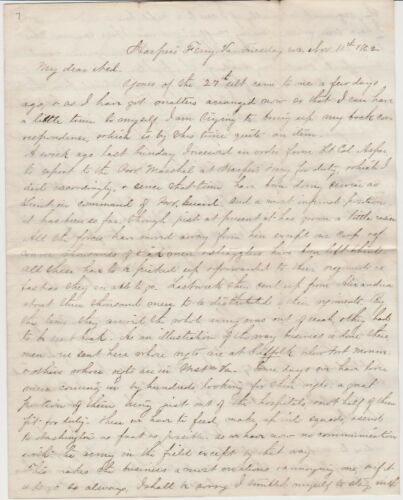 Harper's Ferry, Va, Nov 11th 1862
My dear Ned.
Yours of the 27th ult came to me a few days
ago, & as I have got matters arranged now so that I can have
a little time to myself I am trying to bring up my back cor-
respondence, which is by this time quite an item.
A week ago last Sunday I received an order from Lt Col
to report to the Prov. Marshal at Harper's Ferry for duty, which I
did accordingly, & since that time have been doing service as
Lieut in command of Prov. Guard. And a most infernal position
it has been so far, though just at present it has grown a little easier
All the forces have moved away from here except one corps, & of
course thousands of sick men & stragglers have been left behind
all these have to be picked up & forwarded to their regiments as
fast as they are able to go. Last week they sent up from Alexandria
about three thousand men to be distributed to their regiments. By
the time they arrived the whole army was out of reach & they had
to be sent back. As an illustration of the way business is done these
men we sent here whose regts are at Suffolk & Fort Monroe
& others whose regts are in West Va. Some days we have
men coming in by hundreds looking for their regts, a great
portion of them being just out of the hospitals, & not half of them
fit for duty. These we have to feed, make up into squads, & send
to Washington as fast as possible as we have now no communication
with the army in the field except in that way.
This makes the business a most & annoying one, & if
always, I shall be sorry I suffered myself to stay